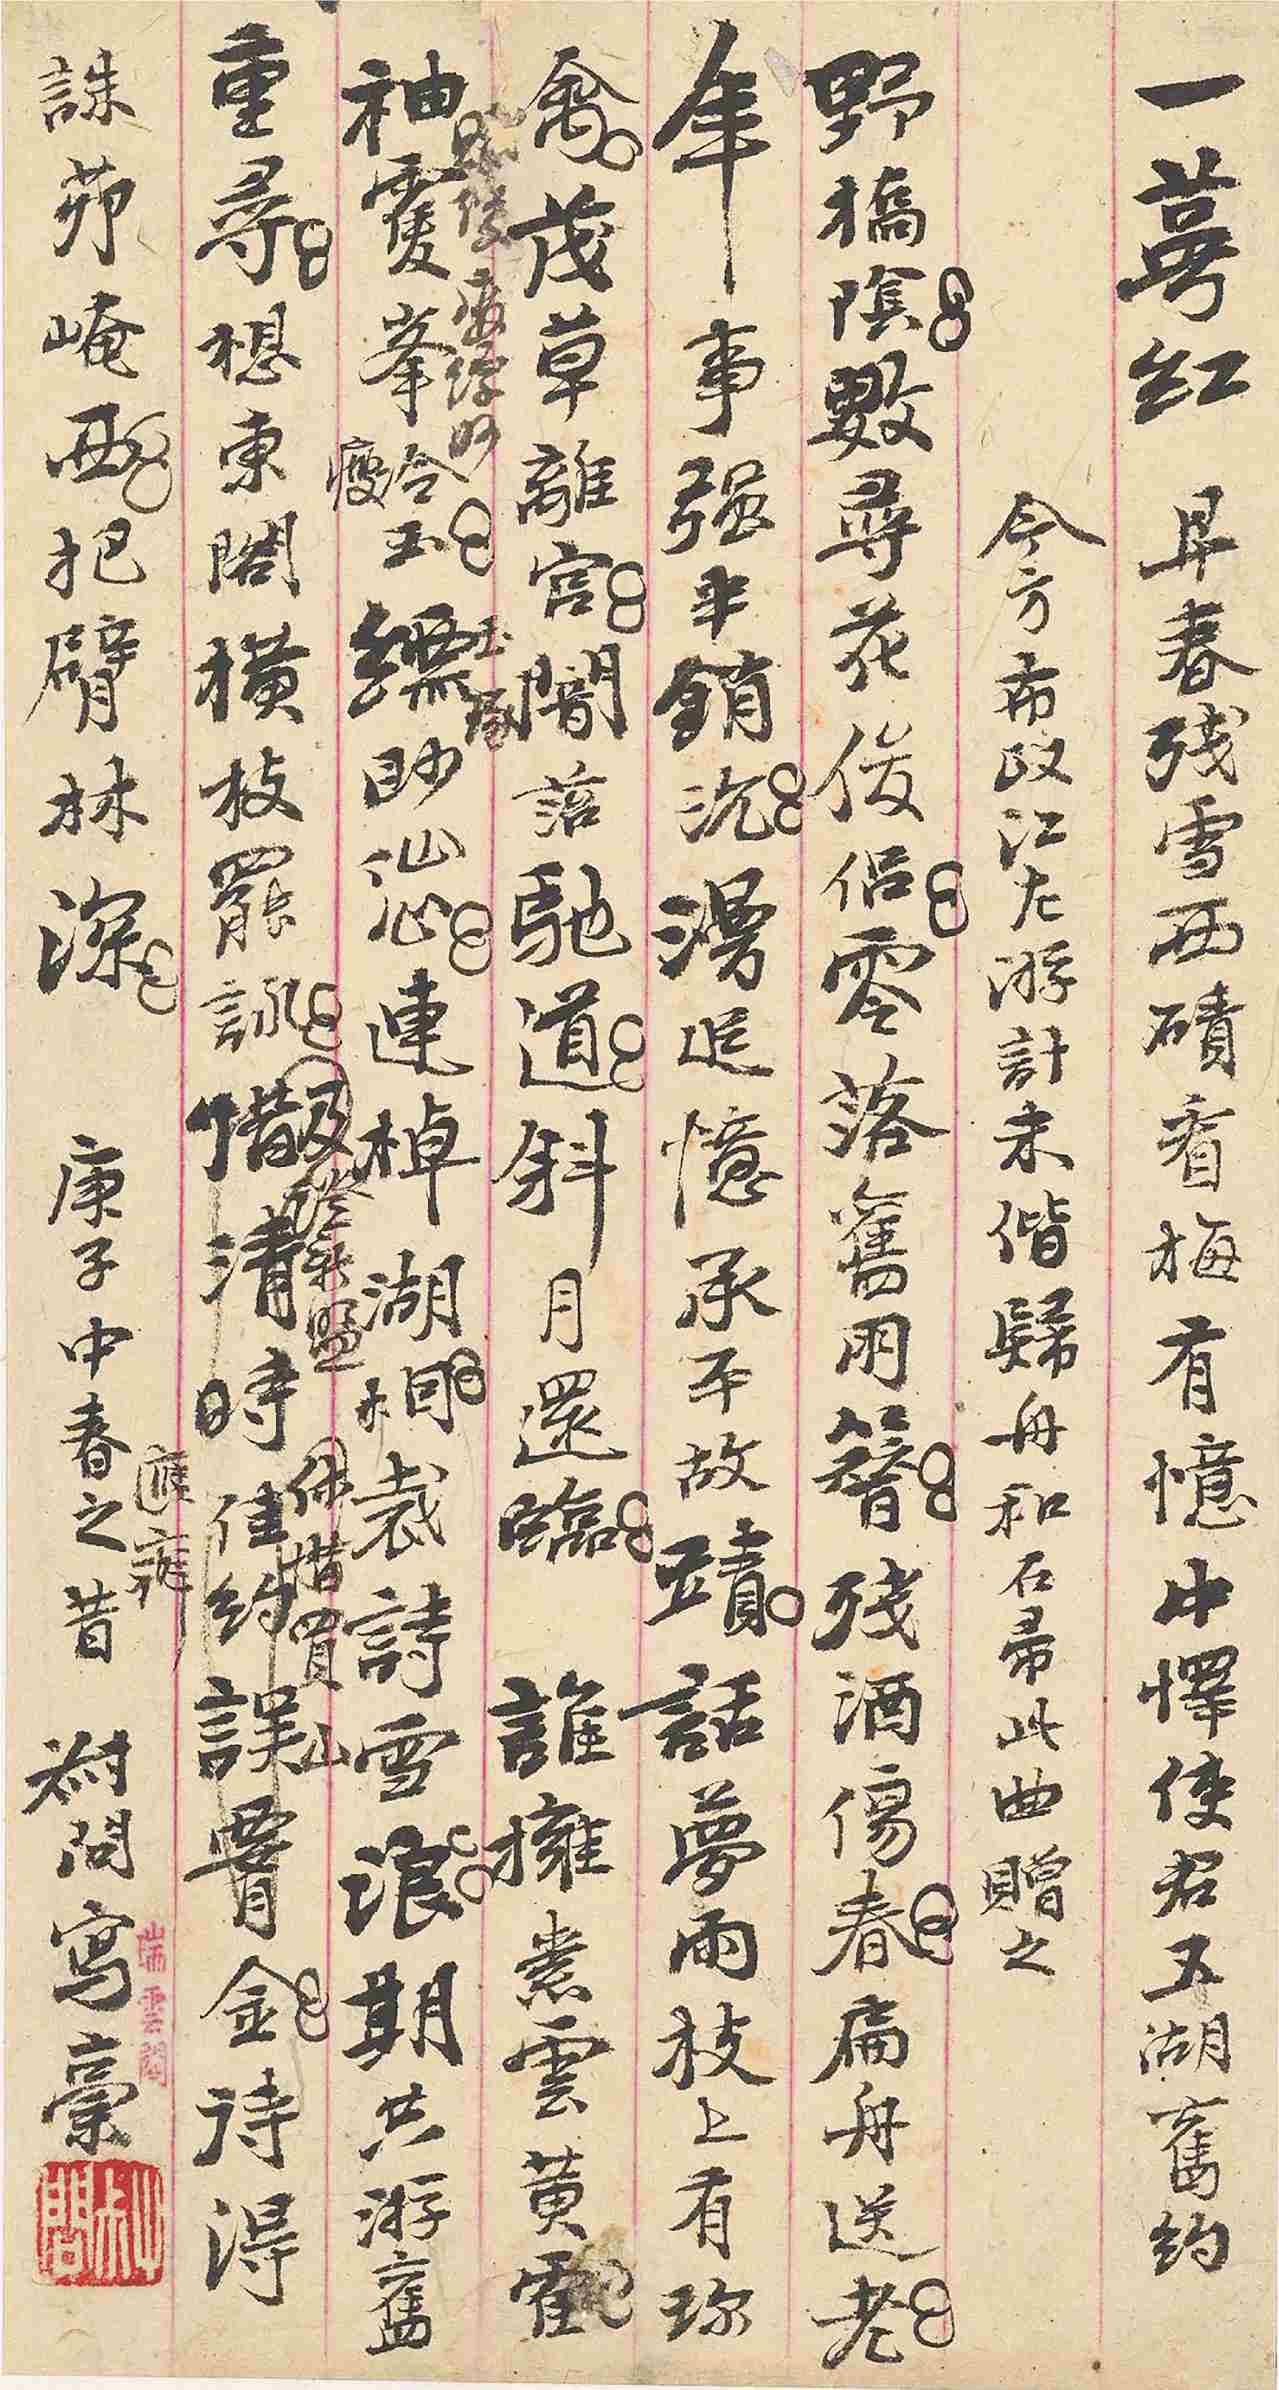 一萼红 早春殘雪西磧看梅有憶中懌使君五湖舊約
今方布政江左游計未偕歸舟和石帚此曲贈之
野橋陰數尋花俊侶零落舊朋簪殘酒傷春扁舟送老
年事强半銷沉漫追憶承平故蹟話夢雨枝上有珍
禽茂草離宮闇落馳道斜月還臨 誰擁素雲黄
袖雙峯冷玉縹眇仙心連棹湖裁詩雪浪期共游舊
瘦
重尋想東閣横枝罷詠惜清時佳約誤腰金待得
休惜買山
誅茆崦西把臂林深 庚子中春之昔 尌問寫稾
瑞雲閣